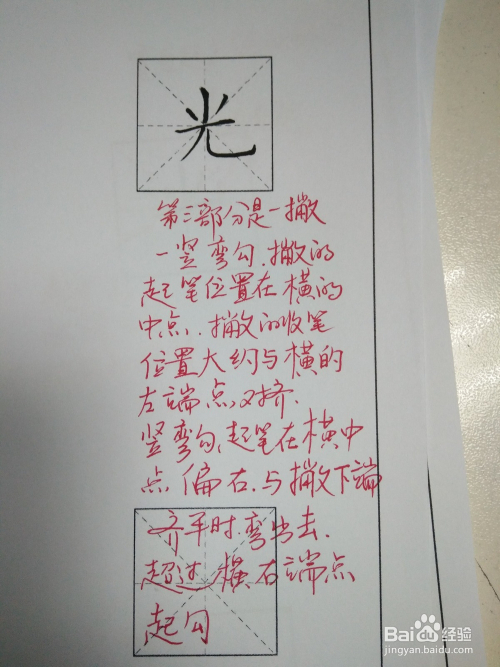 光
第三部分是一撇
一竖弯勾.撇的
起笔位置在横的
中点.撇的收笔
位置大约与横的
左端点对齐.
竖弯勾,起笔在横中
点偏右.与撇下端
齐平时.弯出去.
超过横右端点
起勾
Baidu经验
jingyan.baidu.com